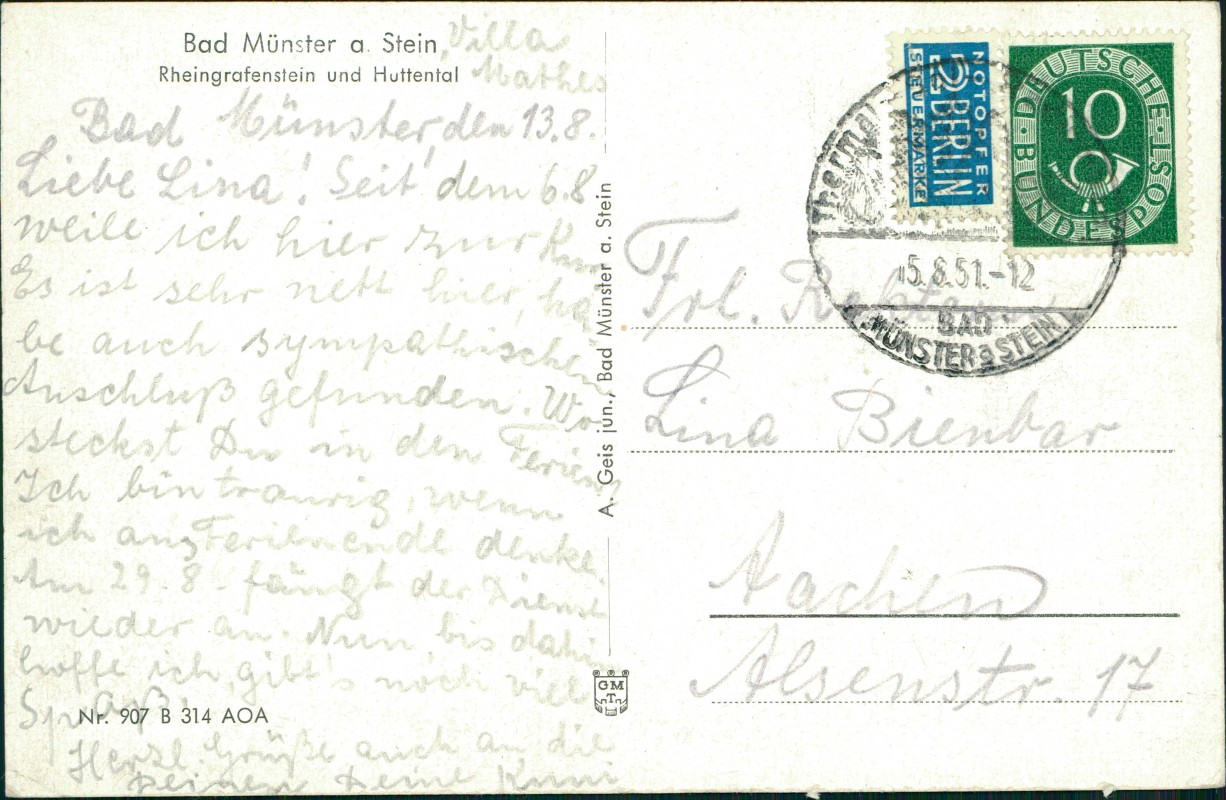 Bad Münster a. Stein, Villa
Mathes
Rheingrafenstein und Huttental
Bad Münster, den 13.8.
Liebe Lina! Seit dem 6.8
weile ich hier zur Kur
Es ist sehr nett hier, ha
be auch sympathischen
Anschluß gefunden. Wo
steckst Du in den Ferien
Ich bin traurig, wenn
ich ans Ferienende denke.
Am 29.8. fängt der Dienst
wieder an. Nun, bis dahin
hoffe ich, gibt noch viel
Spaß.
Nr. 907 B 314 AOA
Herzl. Grüße auch an die
Deinen Deine
A. Geis jun., Bad Münster a. Stein
GMT
NOTOPFER
2 BERLIN
STEUERMARKE
DEUTSCHE BUNDESPOST
10
15.8.51.-12
BAD
MÜNSTER a STEIN
Frl.
Lina Bienbar
Aachen
Alsenstr. 17